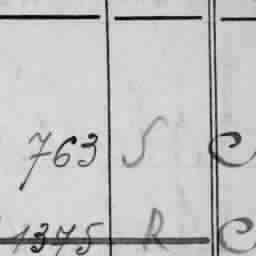 763 S C
1375 R C